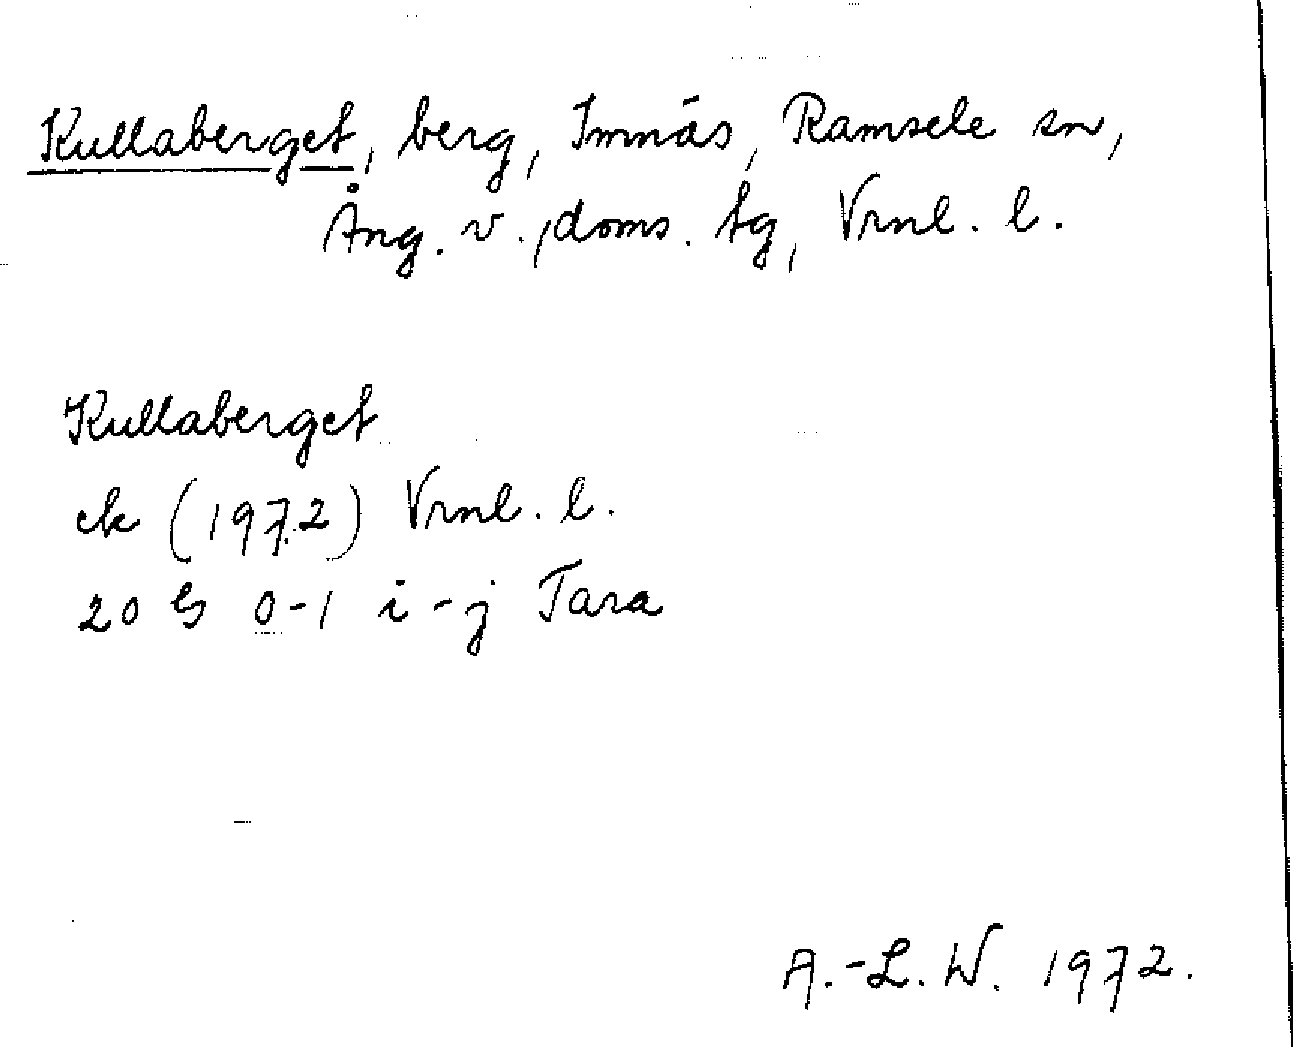 Kullaberget, berg, Imnäs, Ramsele sn,
Ång. v., doms. tg, Vrnl. l.
Kullaberget
ek (1972) Vrnl. l.
20 G 0-1 i-j Tara
A.-L. W. 1972.